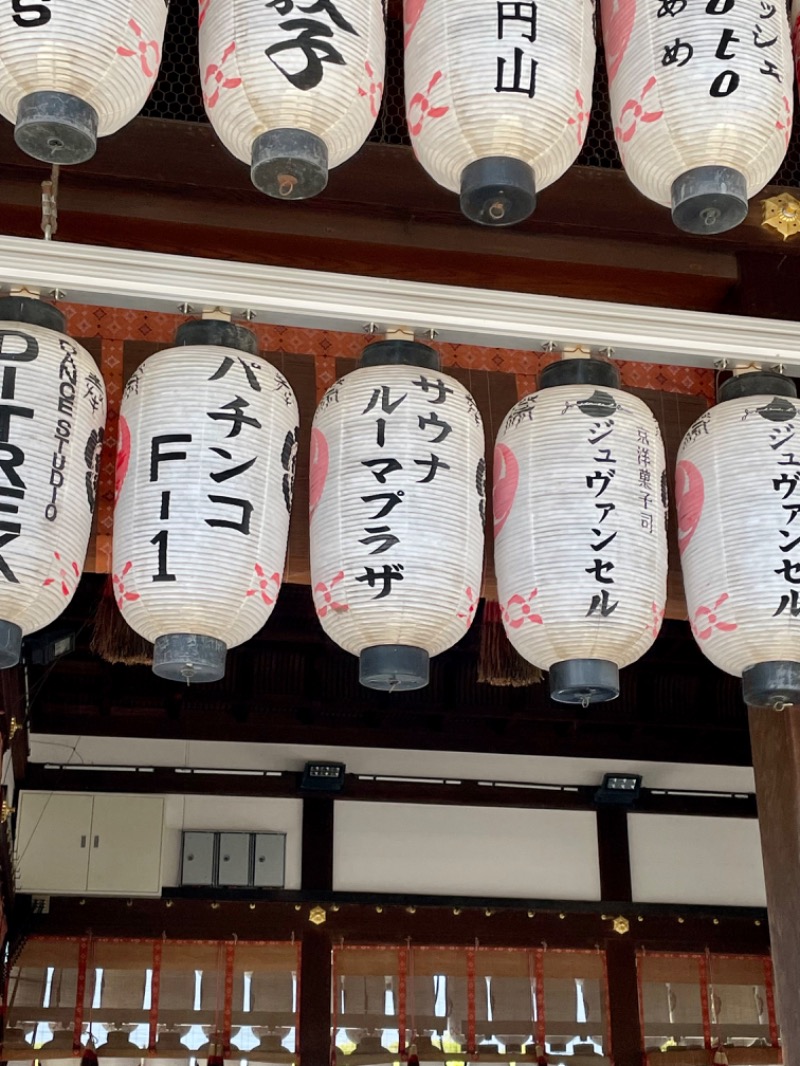 s
敦子
円山
oto
ッシュ
あめ
DITREX
DANCE STUDIO
パチンコ
F-1
サウナ
ルーマプラザ
京洋菓子司
ジュヴァンセル
ジュヴァンセル